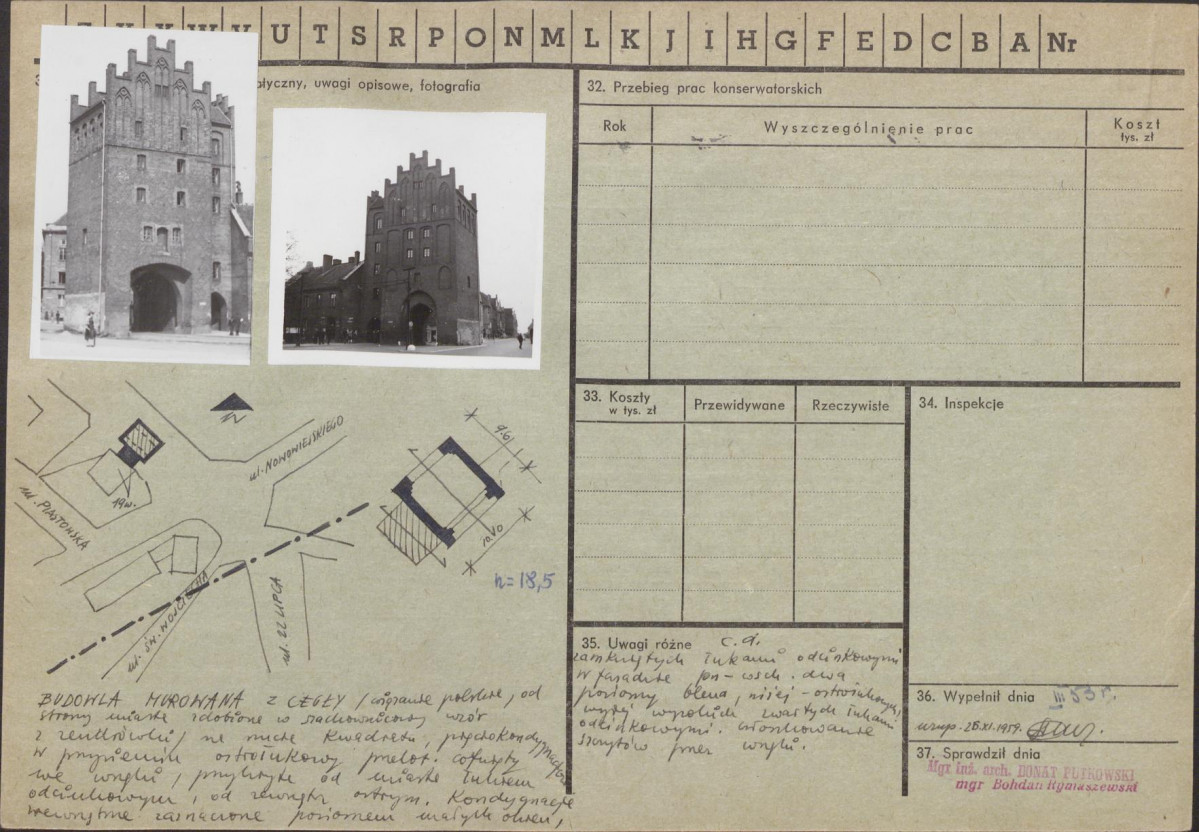 U T S R P O N M L K J I H G F E D C B A Nr
uwagi opisowe, fotografia
32. Przebieg prac konserwatorskich
Rok
Wyszczególnienie prac
Koszt
tys. zł
ul. NOWOWIEJSKIEGO
9.61
10.40
ul. PIASTOWSKA
19w.
ul. ŚW. WOJCIECHA
ul. 22 LIPCA
h=18,5
BUDOWLA MUROWANA z CEGŁY / wiązanie polskie, od
strony miasta zdobione w szachownicowy wzór
z zendrówki / na rzucie kwadratu,
w przyziemiu ostrołukowy przelot. cofnięty
we wnękę, przykryte od miasta łukiem
odcinkowym, od zewnątrz ostrym. Kondygnacje
wewnętrzne zaznaczone poziomem małych okien,
33. Koszty
w tys. zł
Przewidywane
Rzeczywiste
34. Inspekcje
35. Uwagi różne c.d.
zamkniętych łukami odcinkowymi
w fasadzie pn-wsch. dwa
poziomy blend, niżej - ostrołukowych,
wyżej wysokich zwartych łukami
odcinkowymi.
szczytów przez wnęki.
36. Wypełnił dnia III 53 r.
uzup. 26.XI.1959.
37. Sprawdził dnia
Mgr inż. arch. DONAT PUTKOWSKI
mgr Bohdan Rymaszewski